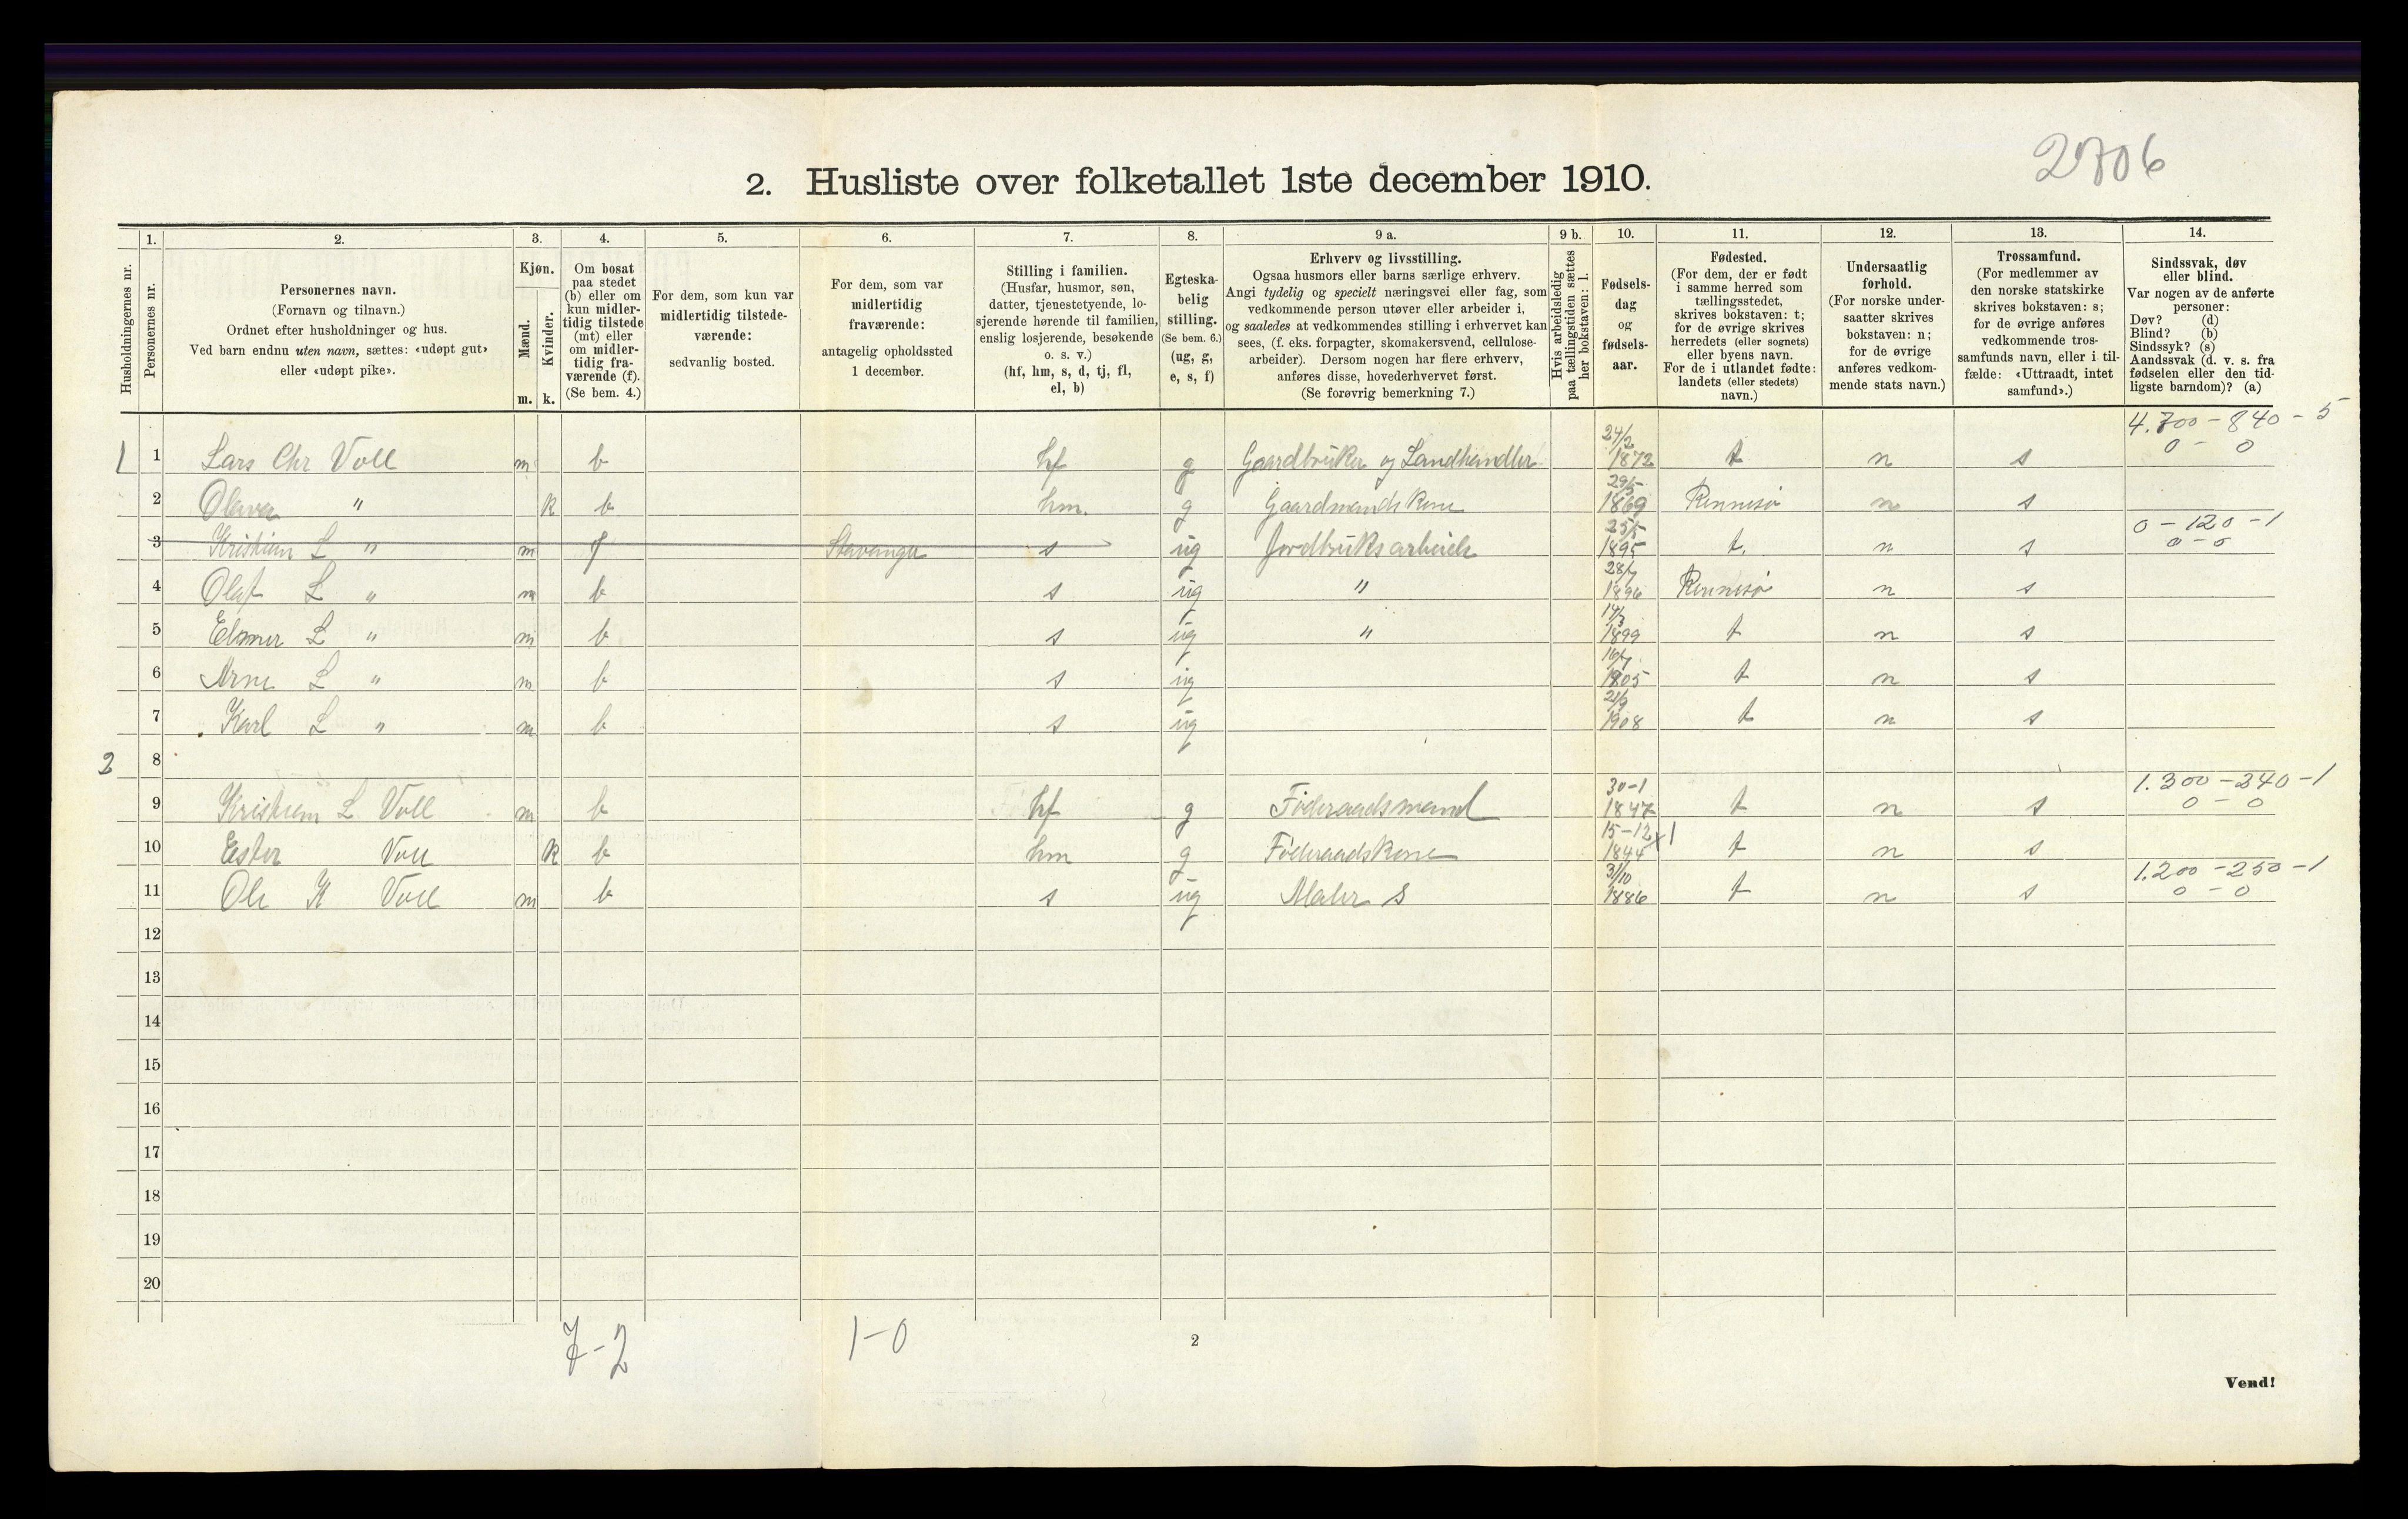 2706
2. Husliste over folketallet 1ste december 1910.
Husholdningernes nr.
1.
Personernes nr.
2.
Personernes navn.
(Fornavn og tilnavn.)
Ordnet efter husholdninger og hus.
Ved barn endnu uten navn, sættes: «udøpt gut»
eller «udøpt pike».
3.
Kjøn.
Mænd.
Kvinder.
m. k.
4.
Om bosat
paa stedet
(b) eller om
kun midler-
tidig tilstede
(mt) eller
om midler-
tidig fra-
værende (f).
(Se bem. 4.)
5.
For dem, som kun var
midlertidig tilstede-
værende:
sedvanlig bosted.
6.
For dem, som var
midlertidig
fraværende:
antagelig opholdssted
1 december.
7.
Stilling i familien.
(Husfar, husmor, søn,
datter, tjenestetyende, lo-
sjerende hørende til familien,
enslig losjerende, besøkende
o. s. v.)
(hf, hm, s, d, tj, fl,
el, b)
8.
Egteska-
belig
stilling.
(Se bem. 6.)
(ug, g,
e, s, f)
9 a.
Erhverv og livsstilling.
Ogsaa husmors eller barns særlige erhverv.
Angi tydelig og specielt næringsvei eller fag, som
vedkommende person utøver eller arbeider i,
og saaledes at vedkommendes stilling i erhvervet kan
sees, (f. eks. forpagter, skomakersvend, cellulose-
arbeider). Dersom nogen har flere erhverv,
anføres disse, hovederhvervet først.
(Se forøvrig bemerkning 7.)
9 b.
Hvis arbeidsledig
paa tællingstiden sættes
her bokstaven: l.
10.
Fødsels-
dag
og
fødsels-
aar.
11.
Fødested.
(For dem, der er født
i samme herred som
tællingsstedet,
skrives bokstaven: t;
for de øvrige skrives
herredets (eller sognets)
eller byens navn.
For de i utlandet fødte:
landets (eller stedets)
navn.)
12.
Undersaatlig
forhold.
(For norske under-
saatter skrives
bokstaven: n;
for de øvrige
anføres vedkom-
mende stats navn.)
13.
Trossamfund.
(For medlemmer av
den norske statskirke
skrives bokstaven: s;
for de øvrige anføres
vedkommende tros-
samfunds navn, eller i til-
fælde: «Uttraadt, intet
samfund».)
14.
Sindssvak, døv
eller blind.
Var nogen av de anførte
personer:
Døv? (d)
Blind? (b)
Sindssyk? (s)
Aandssvak (d. v. s. fra
fødselen eller den tid-
ligste barndom)? (a)
4.700 - 840 - 5
0 - 0
1 1 Lars Chr Voll m b hf g Gaardbruker og Landhandler 24/2 1872 t n s
2 Olava " k b hm. g Gaardmandskone 29/5 1869 Rennesø n s
0 - 120 - 1
0 - 0
3 Kristian L " m f Stavanger s ug Jordbruksarbeide 25/5 1895 t. n s
4 Olaf L " m b s ug " 1896 Rennesø n s
5 Elmer L " m b s ug " 14/3 1899 t n s
6 Arne L " m b s ug 1905 t n s
7 Karl L " m b s ug 21/9 1908 t n s
2 8
1.300 - 240 - 1
0 - 0
9 Kristian L Voll m b hf g Føderaadsmand 30-1 1847 t n s
10 Ester Voll k b hm g Føderaadskone 15-12 1844 x1 t n s
1.200 - 250 - 1
0 - 0
11 Ole K Voll m b s ug Maler s 3/10 1886 t n s
12
13
14
15
16
17
18
19
20
7-2 1-0
2
Vend!